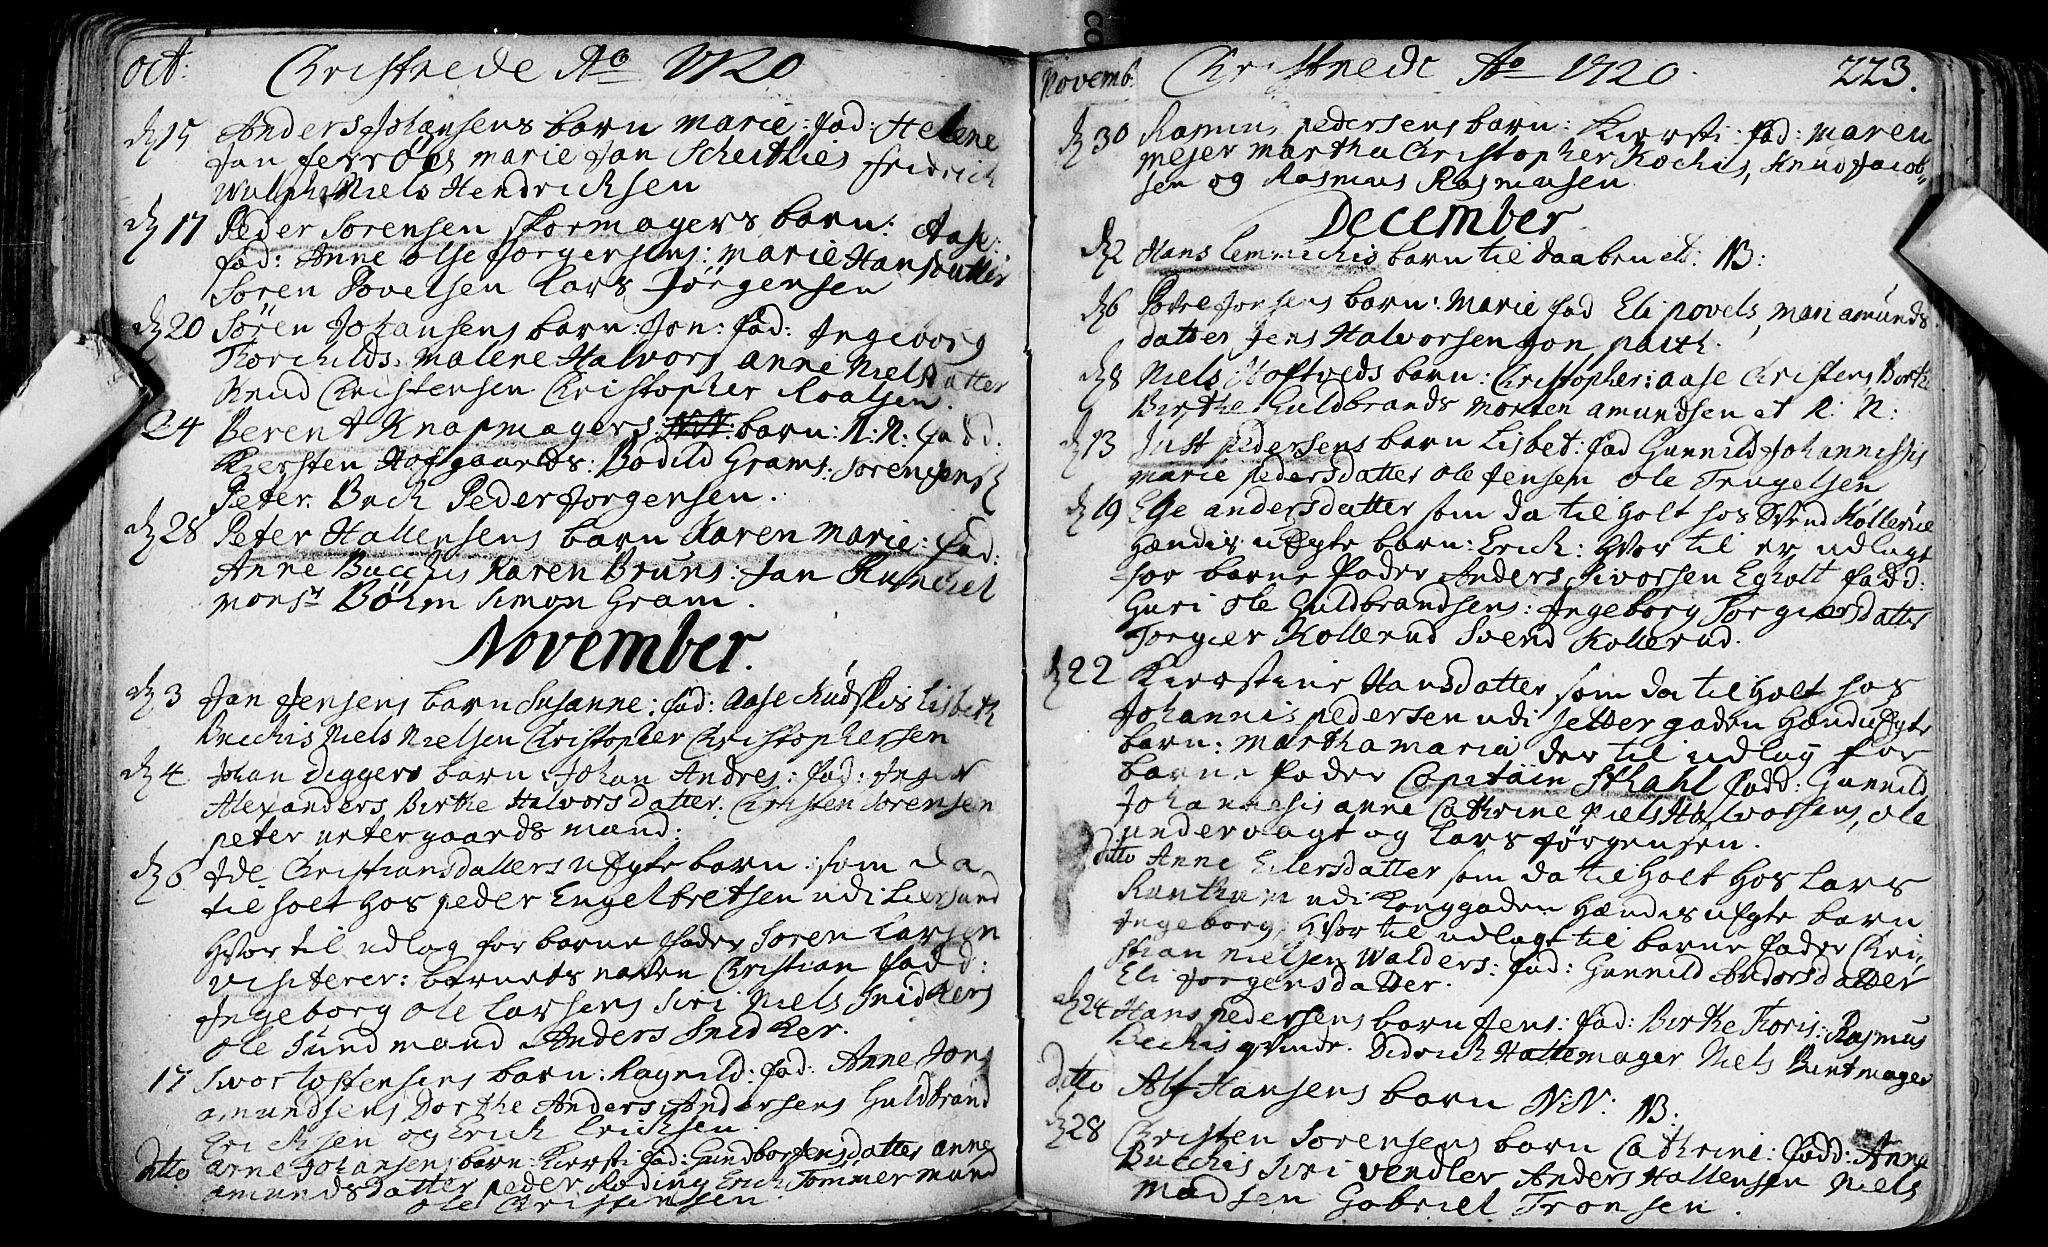 oct: Christnede Ao 1720
d 15 Anders Johansens barn marie: fad: Helene
Jan ferrões marie Jan Scheitlies fridrich
Wulph Niels Hendrichsen
d 17 Peder Sorensen skormagers barn: Aase:
fad: Anne olse Jorgensens: marie Hans
Søren Povelsen Lars Jörgensen
d 20 Sören Johansens barn: Jon: fad: Ingeborg
Thorchilds, malene Halvors anne Nielsdatter
Knud Christensen Christopher Roalsen.
24 Berent Knapmagers barn: N: N: fadd.
Kiersten Hofgaards: Bodild Grams: Sorensens
Peter Buch Peder Jorgensen.
d 28 Peter Hallensens barn Karen marie: fad:
Anne Bucchis Karen Bruns: Jan Runchel
monsr Böhm Simon Gram.
November.
d 3 Jan Jensens barn Susanne: fad: Aase Rudskis Lisbeth
Bucchis Niels Nielsen Christopher Christophersen
d 4 Johan Diggers barn: Johan Andres: fad: Inger
Alexanders Birthe Halvorsdatter. Christen Sorensen
peter urtergaards mand:
d 6 Ide Christiansdatters uægte barn: som da
til holt hos peder Engelbretsen udi Liersund
hvor til udlag for barne fader Soren Larsen
visiterer: barnets nafn Christian fadd:
Ingeborg ole Larsens Siri Niels Snidkers
ole Sundmand Anders Snidker.
17 Sivor tostensens barn: Ragnild: fad: Anne Jons
amundsens Dorthe Anders Andersens Guldbrand
Erichsen og Erich Erichsen.
ditto arne Johansens barn: Kiersti fad: Gundbor Jensdatter anne
amundsdatter peder Roding Erich Tømmermand
ole Christensen
Novemb. Christnede Ao 1720. 223.
d 30 Rasmus pedersens barn: Kiersti: fad: maren
mejer martha Christopher Kochis, Knud Jacob-
sen og Rasmus Rasmusen
December
d 2 Hans Lemmichis barn til daaben et: NB:
d 6 Povre Jonsens barn: Marie fad Eli povels, mari amunds
datter Jens Halvorsen Jon parth.
d 8 Niels Hoftveds barn: Christopher: aase Christens
Birthe Guldbrands Morten amundsen et N: N:
d 13 Just pedersens barn Lisbet: fad Gunnild Johannissis
marie pedersdatter ole Jensen ole Trugelsen
d 19 Else andersdatter som da til holt hos Svend Køllerüe
Hændis uægte barn: Erich: Hvor til er udlagt
for barne fader Anders Sivorsen Egholt fadd:
Guri ole Guldbrandsens: Ingeborg Torgiersdatter
Torgier Kollerud Svend Kollerud.
d 22 Kierstine Hansdatter som da til holt hos
Johannis pedersen udi Settergaden Hændis uægte
barn: Martha maria der til udlag for
barne fader Capitäin Sthahl fadd: Gunnild
Johannesis anne Cathrine Niels Halvorsens, ole
undervagt og Lars Jørgensen.
ditto Anne Eilersdatter som da til holt hos Lars
udi Konggaden Hændis uægte barn
Ingeborg: Hvor til udlagt til barne fader Chri-
stian Nielsen Walders: fad: Gunnild Andorsdatter
Eli Jorgensdatter.
d 24 Hans pedersens barn Jens: fad: Birthe Thoris: Rasmus
Bechis qvinde. Didrich Hattemager Niels Buntmager
ditto Alf Hansens barn N:N: NB:
d 28 Christen Sorensens barn Cathrine: fadd: Anne
Bucchis Siri Vendler Anders Hallensen Niels
Madsen Gabriel Tronsen.